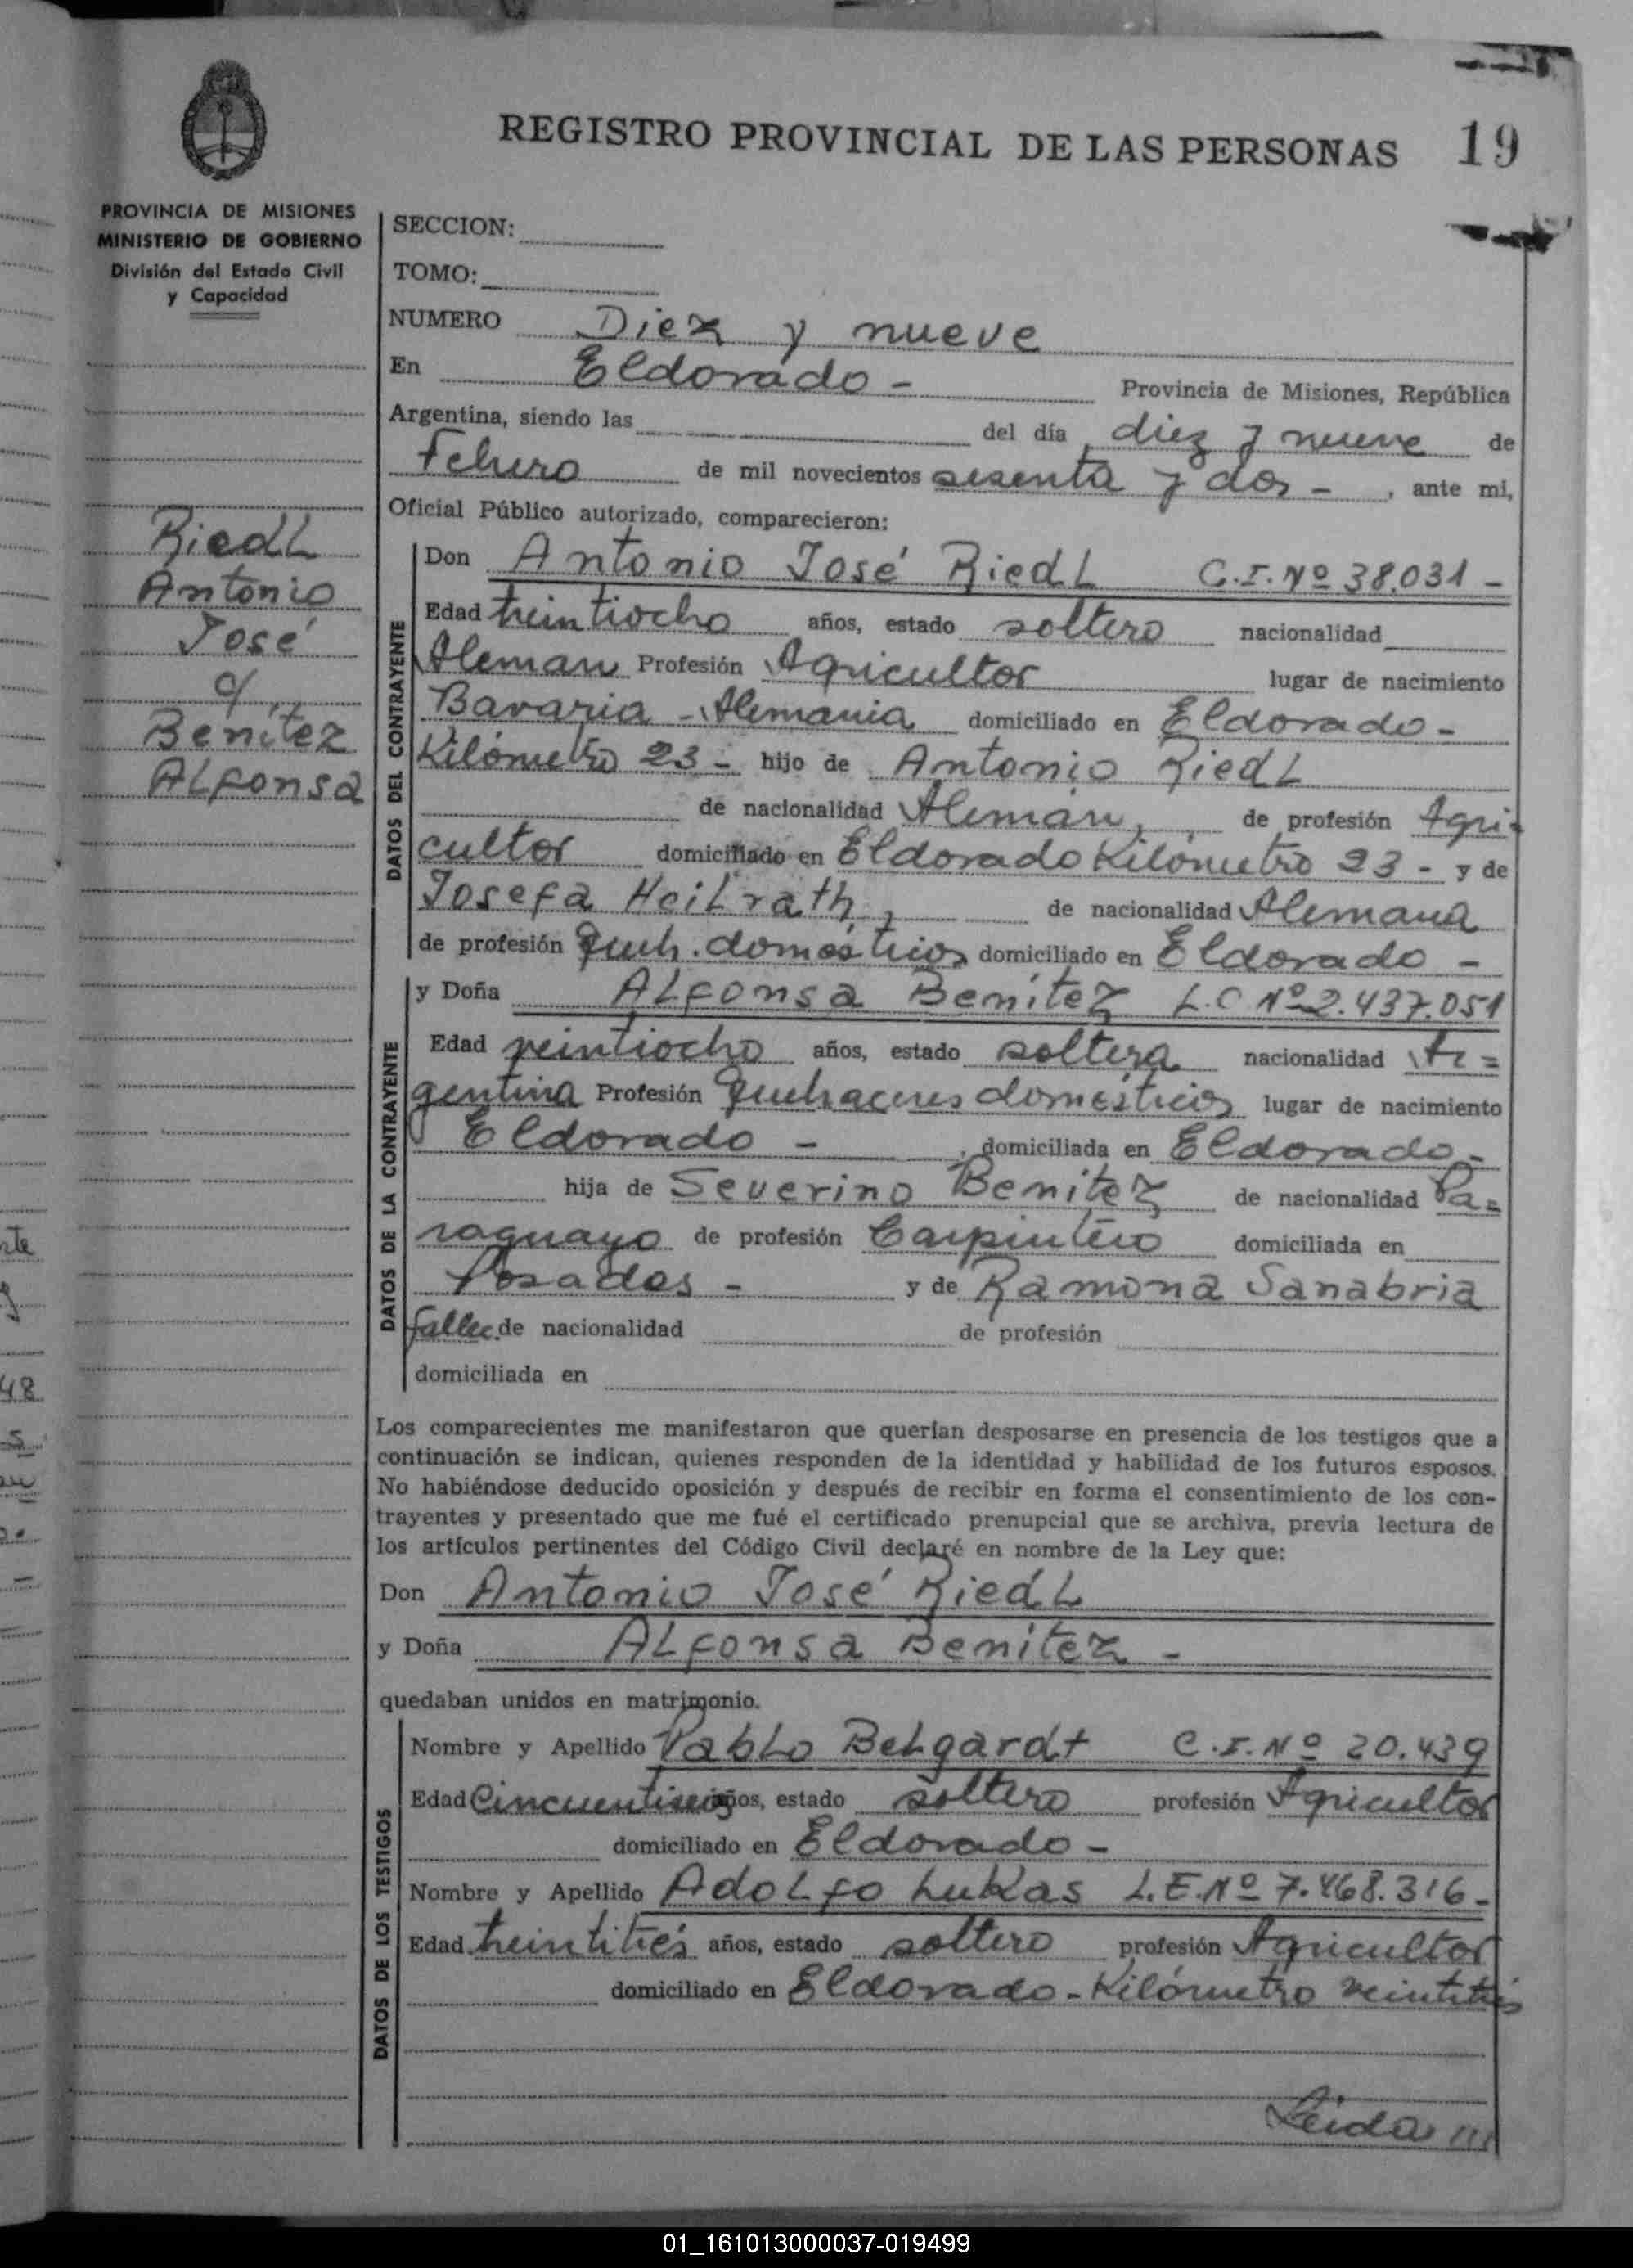 REGISTRO PROVINCIAL DE LAS PERSONAS 19
PROVINCIA DE MISIONES
MINISTERIO DE GOBIERNO
División del Estado Civil
y Capacidad
SECCION:
TOMO:
NUMERO Diez y nueve
En Eldorado - Provincia de Misiones, República
Argentina, siendo las del día diez y nueve de
Febrero de mil novecientos sesenta y dos - , ante mi,
Oficial Público autorizado, comparecieron:
Riedl
Antonio
José
c/
Benitez
Alfonsa
DATOS DEL CONTRAYENTE
Don Antonio José Riedl C.I. Nº 38.031 -
Edad treintiocho años, estado soltero nacionalidad
Aleman Profesión Agricultor lugar de nacimiento
Bavaria - Alemania domiciliado en Eldorado -
Kilómetro 23 - hijo de Antonio Riedl
de nacionalidad Alemán, de profesión Agri-
cultor domiciliado en Eldorado Kilómetro 23 - y de
Josefa Heilrath, de nacionalidad Alemana
de profesión Queh. domésticos domiciliado en Eldorado -
DATOS DE LA CONTRAYENTE
y Doña Alfonsa Benítez L.C Nº 2.437.051
Edad veintiocho años, estado soltera nacionalidad Ar=
gentina Profesión Quehaceres domésticos lugar de nacimiento
Eldorado - , domiciliada en Eldorado -
hija de Severino Benitez de nacionalidad Pa=
raguayo de profesión Carpintero domiciliada en
Posadas - y de Ramona Sanabria
fallec. de nacionalidad de profesión
domiciliada en
Los comparecientes me manifestaron que querían desposarse en presencia de los testigos que a
continuación se indican, quienes responden de la identidad y habilidad de los futuros esposos.
No habiéndose deducido oposición y después de recibir en forma el consentimiento de los con-
trayentes y presentado que me fué el certificado prenupcial que se archiva, previa lectura de
los artículos pertinentes del Código Civil declaré en nombre de la Ley que:
Don Antonio José Riedl
y Doña Alfonsa Benitez -
quedaban unidos en matrimonio.
DATOS DE LOS TESTIGOS
Nombre y Apellido Pablo Belgardt C.I. Nº 20.439
Edad Cincuentiseis años, estado soltero profesión Agricultor
domiciliado en Eldorado -
Nombre y Apellido Adolfo Lukas L.E. Nº 7.468.316 -
Edad treintitrés años, estado soltero profesión Agricultor
domiciliado en Eldorado - Kilómetro veintitrés
Leida ///
48
01_161013000037-019499